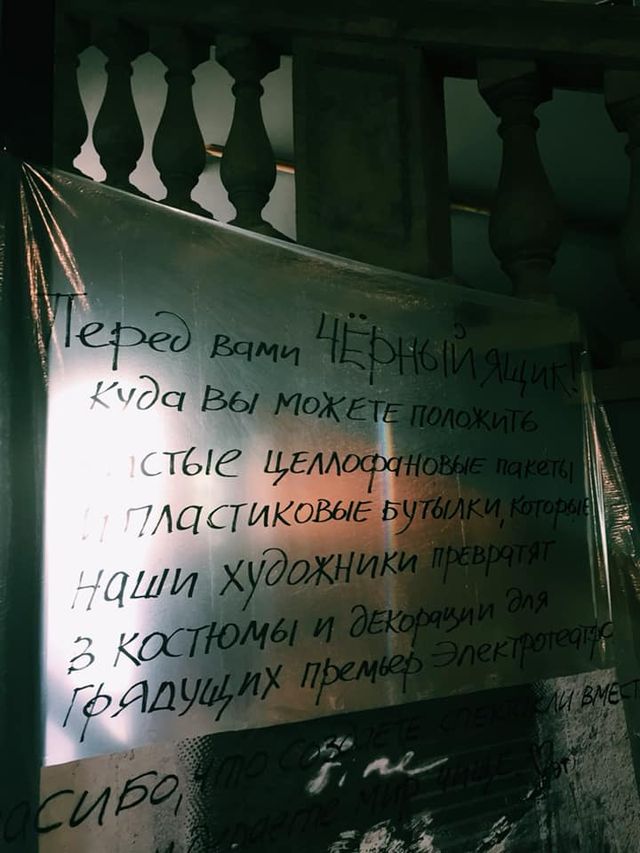 Перед вами ЧЁРНЫЙ ящик!
куда вы можете положить
стые целлофановые пакеты
и пластиковые бутылки, которые
наши художники превратят
в костюмы и декорации для
грядущих премьер Электротеатра
асибо, что создаете спектакли вмест
мир чище